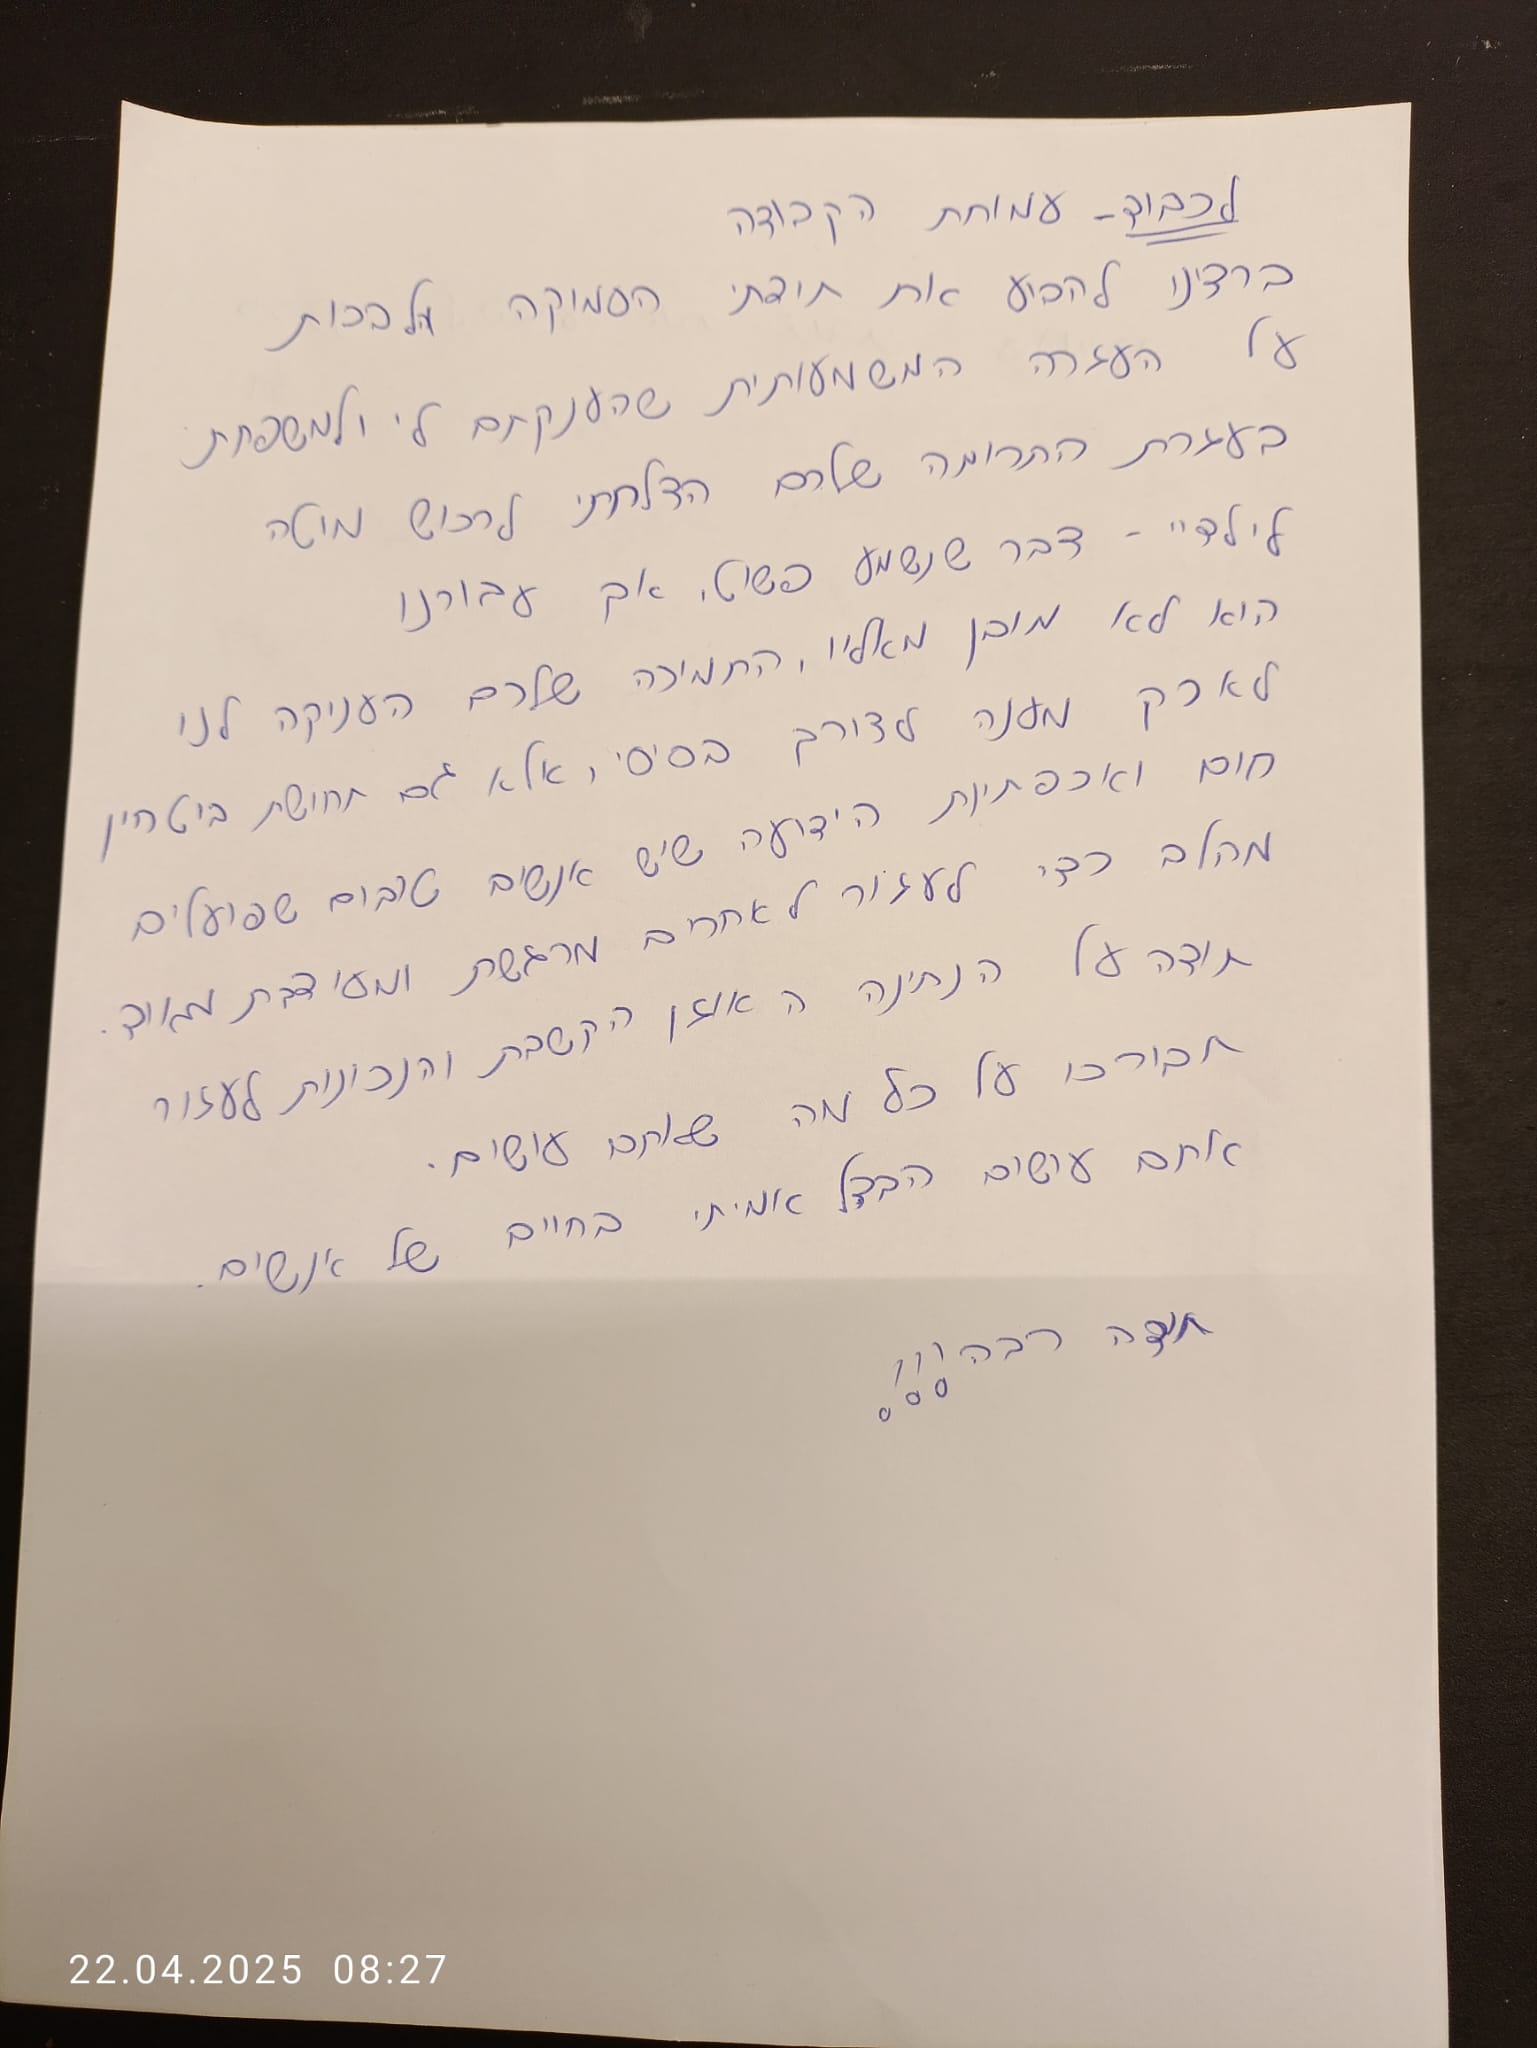 לכבוד - עמותת הקבודה
ברצינו להביע את תודתי העמוקה והלבבית
על העזרה המשמעותית שהענקתם לי ולמשפחת
בעזרת התרומה שלכם הצלחתי לרכוש מיטה
לילדיי - דבר שנשמע פשוט, אך עבורנו
הוא לא מובן מאליו, התמיכה שלכם העניקה לנו
לא רק מענה לצורך בסיסי, אלא גם תחושת ביטחון
חום ואכפתינת הידועה שיש אנשים טובים שפועלים
מהלב כדי לעזור לאחרים מרגשת ומעודדת מאוד.
תודה על הנתינה האוזן הקשבת והנכונות לעזור
תבורכו על כל מה שאתם עושים.
אתם עושים הבדל אמיתי בחיים של אנשים.
תודה רבה!!!
22.04.2025 08:27